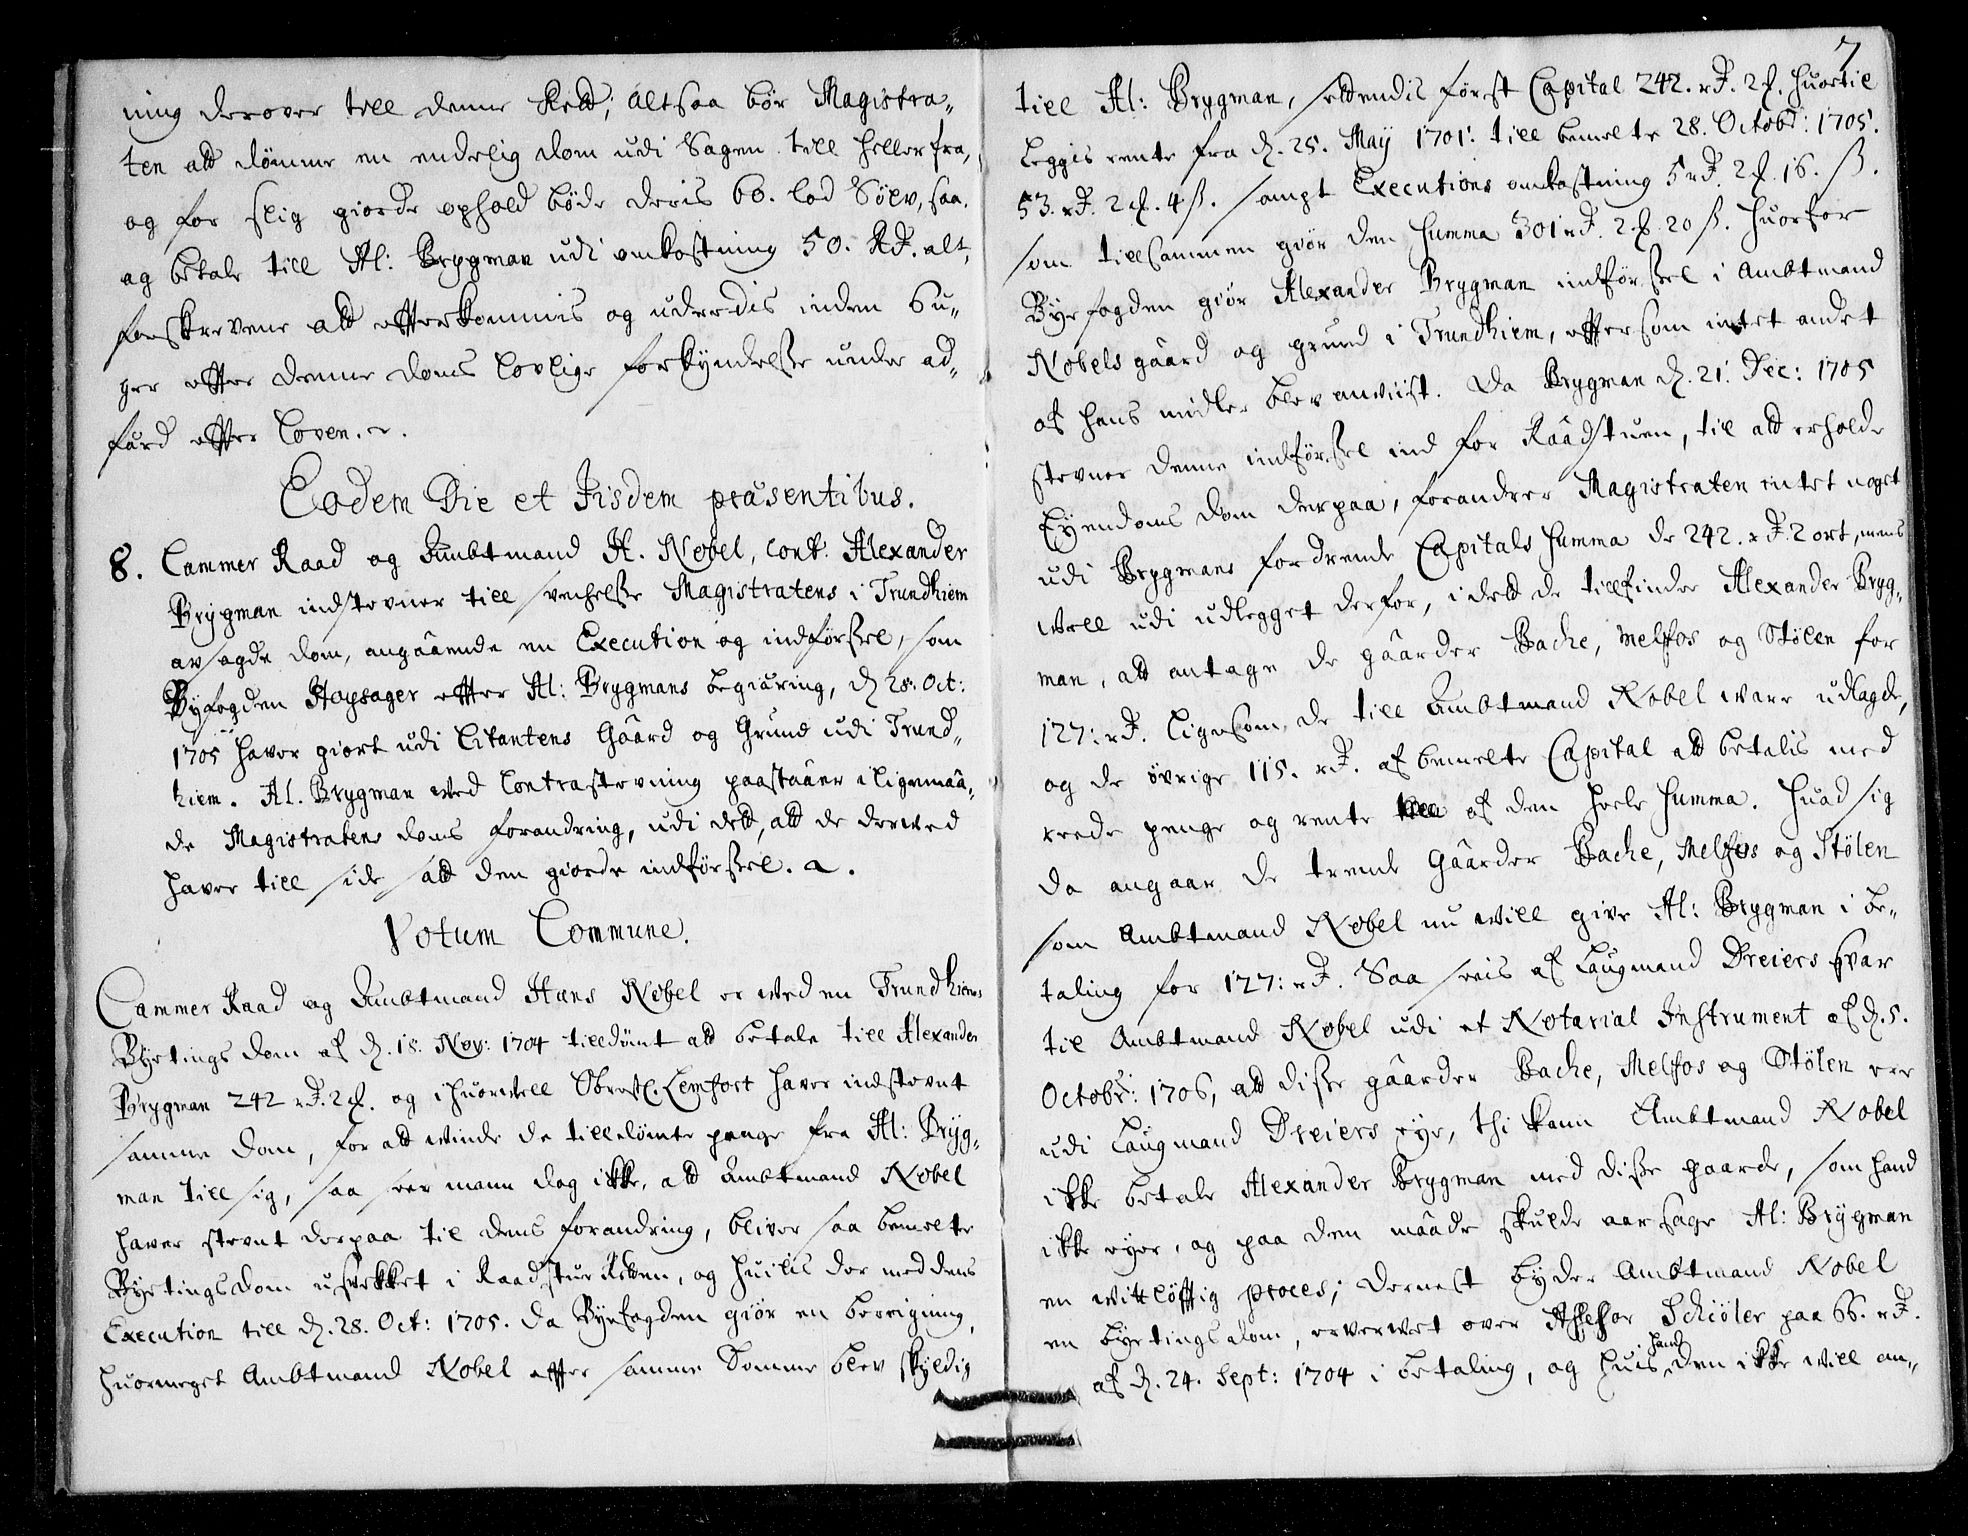 ning derover till denne Rett; altsaa bør Magistra„
ten att dömme en endelig dom udi Sagen till heller fra,
og for slig giorde ophold böde deris 60. lod Sölv, saa,
og betale till Al: Brygman udi omkostning 50. Rd. alt,
forskrevene att efterkommis og uderedis inden 6 u„
ger efter denne doms lovlige forkyndelsse under ad„
færd efter loven. etc.
Eodem Die et Iisdem præsentibus.
8. Cammer Raad og Ambtmand H. Nobel, cont. Alexander
Brygman indstevner till svechelsse Magistratens i Trundhiem
avsagde dom, angaaende en Execution og indförssel, som
Byfogden Hoysager efter Al: Brygmans begiæring, d. 28. Oct:
1705 haver giort udi Citantens Gaard og Grund udi Trund„
hiem. Al. Brygman ved Contrastevning paastaaer i ligemaa„
de Magistratens doms forandring, udi dett, att de derved
haver till side satt den giorde indförssel. etc.
Votum Commune.
Cammer Raad og Ambtmand Hans Nobel er ved en Trundhiems
Byetings dom af d. 18. Nov: 1704 tilldömt att betale till Alexander
Brygman 242 rd. 2 ort. og ihuorvell Obrestl. Lemfort haver indstevnt
samme dom, for att vinde de tilldömte penge fra Al: Bryg„
man till sig, saa seer mann dog ikke, att Ambtmand Nobel
haver stevnt derpaa til dens forandring, bliver saa bemelte
Byetingsdom usvekket i Raadstue Retten, og huilis der med dens
Execution till d. 28. Oct: 1705. da Byefogden giör en beregning,
huormeget Ambtmand Nobel efter samme Domme blev skyldig
7
till Al: Brygman, settendis först Capital 242. rd. 2 ort. huortil
leggis rente fra d. 25. May 1701. till bemelte 28. Octobr: 1705.
53. rd. 2 ort. 4 ß. sampt Executions omkostning 5 rd. 2 ort. 16. ß.
som tillsammen giör den Summa 301 rd. 2 ort. 20 ß. huorfor
Byefogden giör Alexander Brygman indförssel i Ambtmand
Nobels gaard og grund i Trundhiem, eftersom intet andet
af hans midler blev anviist. Da Brygman d. 21. Dec: 1705
stevner denne indförssel ind for Raadstuen, til att erholde
Eyendoms dom derpaa, forandrer Magistraten intet noget
udi Brygmans fordrende Capitals Summa de 242. rd. 2 ort, mens
vell udi udlegget derfor, i dett de tillfinder Alexander Bryg„
man, att antage de gaarder Bache, Melfos og Stölen for
127: rd. ligesom de till Ambtmand Nobel vare udlagde,
og de övrige 115. rd. af bemelte Capital att betalis med
reede penge og rente af den heele Summa. Huad sig
da angaar de trende Gaarder Bache, Melfos og Stölen
som Ambtmand Nobel nu vill give Al: Brygman i be„
taling for 127: rd. Saa sees af Laugmand Dreiers svar
til Ambtmand Nobel udi et Notarial Instrument af d. 5.
Octobr: 1706, att disse gaarder Bache, Melfos og Stölen eer
udi Laugmand Dreiers eye, thi kann Ambtmand Nobel
ikke betale Alexander Brygman med disse gaarde, som hand
ikke eyer, og paa den maade skulde aarsage Al: Brygman
en vitlöftig proces; dernest byder Ambtmand Nobel
en byetings dom, erververt over Assessor Schiöler paa 66. rd.
af d. 24. Sept: 1704 i betaling, og huis hand den ikke vill an„